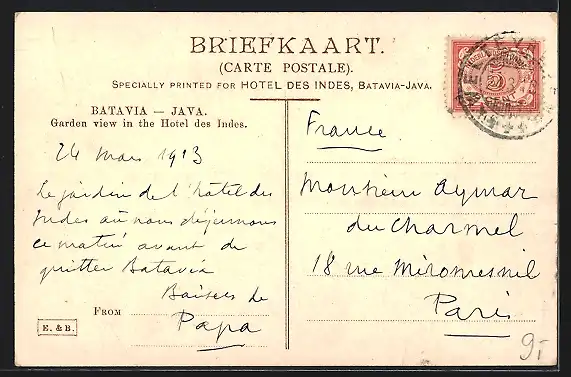 BRIEFKAART.
(CARTE POSTALE).
SPECIALLY PRINTED FOR HOTEL DES INDES, BATAVIA-JAVA.
BATAVIA — JAVA.
Garden view in the Hotel des Indes.
24 mars 1913
Le jardin de l'hôtel des
Indes où nous déjeunons
ce matin avant de
quitter Batavia
Baisers de
FROM Papa
E. & B.
France
Monsieur Aymar
du Charmel
18 rue Miromesnil
Paris
9,-
5